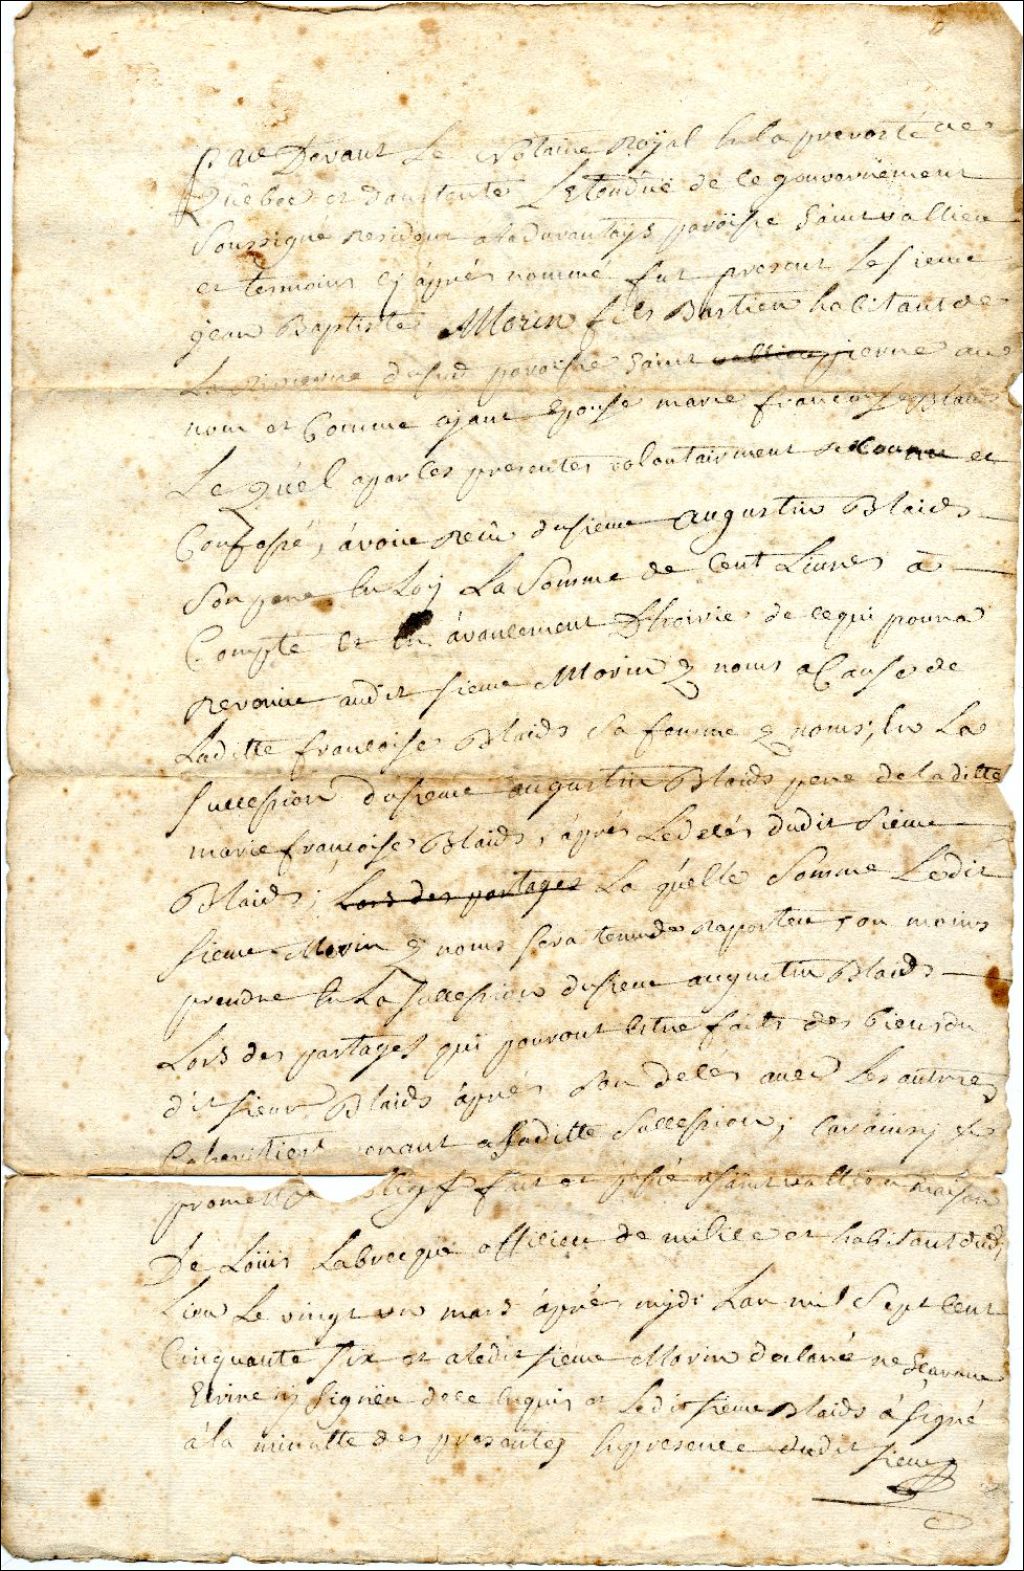 Par Devant Le Notaire Royal En la prevosté de
Quebec et dans toutte Letenduë de ce gouvernement
Soussigné Resident a paroisse Saint vallier
et temoins cy áprés nommé fut present Le sieur
jean Baptiste Morin fils Bastien habitant de
La Riviere du sud paroisse Saint vallier pierre au
nom et Comme ajant Epousé marie francoise Blaids
Le Quél a par les presentes volontairment Reconnu et
Confessé, ávoir Reçû du sieur augustin Blaids
Son pere En Loy La Somme de Cent Livres á
Compte et En ávancement D'hoirie de ce qui poura
Revenire audit sieur Morin & noms a Cause de
Laditte francoise Blaids Sa femme & noms, En La
succession du sieur augustin Blaids pere de laditte
marie francoise Blaids, áprés Le decés dudit Sieur
Blaids; Lors des partages La quélle Somme Ledit
sieur Morin & noms sera tenu de Rapporter, ou moins
prendre En La succession du sieur augustin Blaids
Lors des partages qui pouront Estre faits des biens du
dit sieur Blaids áprés Son decés avec Les autres
Coheritiers venant a Saditte Succession; Car áinsy &c
promett &c oblig &c fait et passé a Saint vallier maison
De Loüis Labrecque officier de milice et habitant dudit
Lieu Le vingt un mars áprés mydi Lan mil Sept Cent
Cinquante six et a ledit sieur Morin declaré ne Sçavoir
Ecrire ny Signer de ce Enquis et Ledit sieur Blaids á signé
á la minutte des presentes En presence dudit sieur